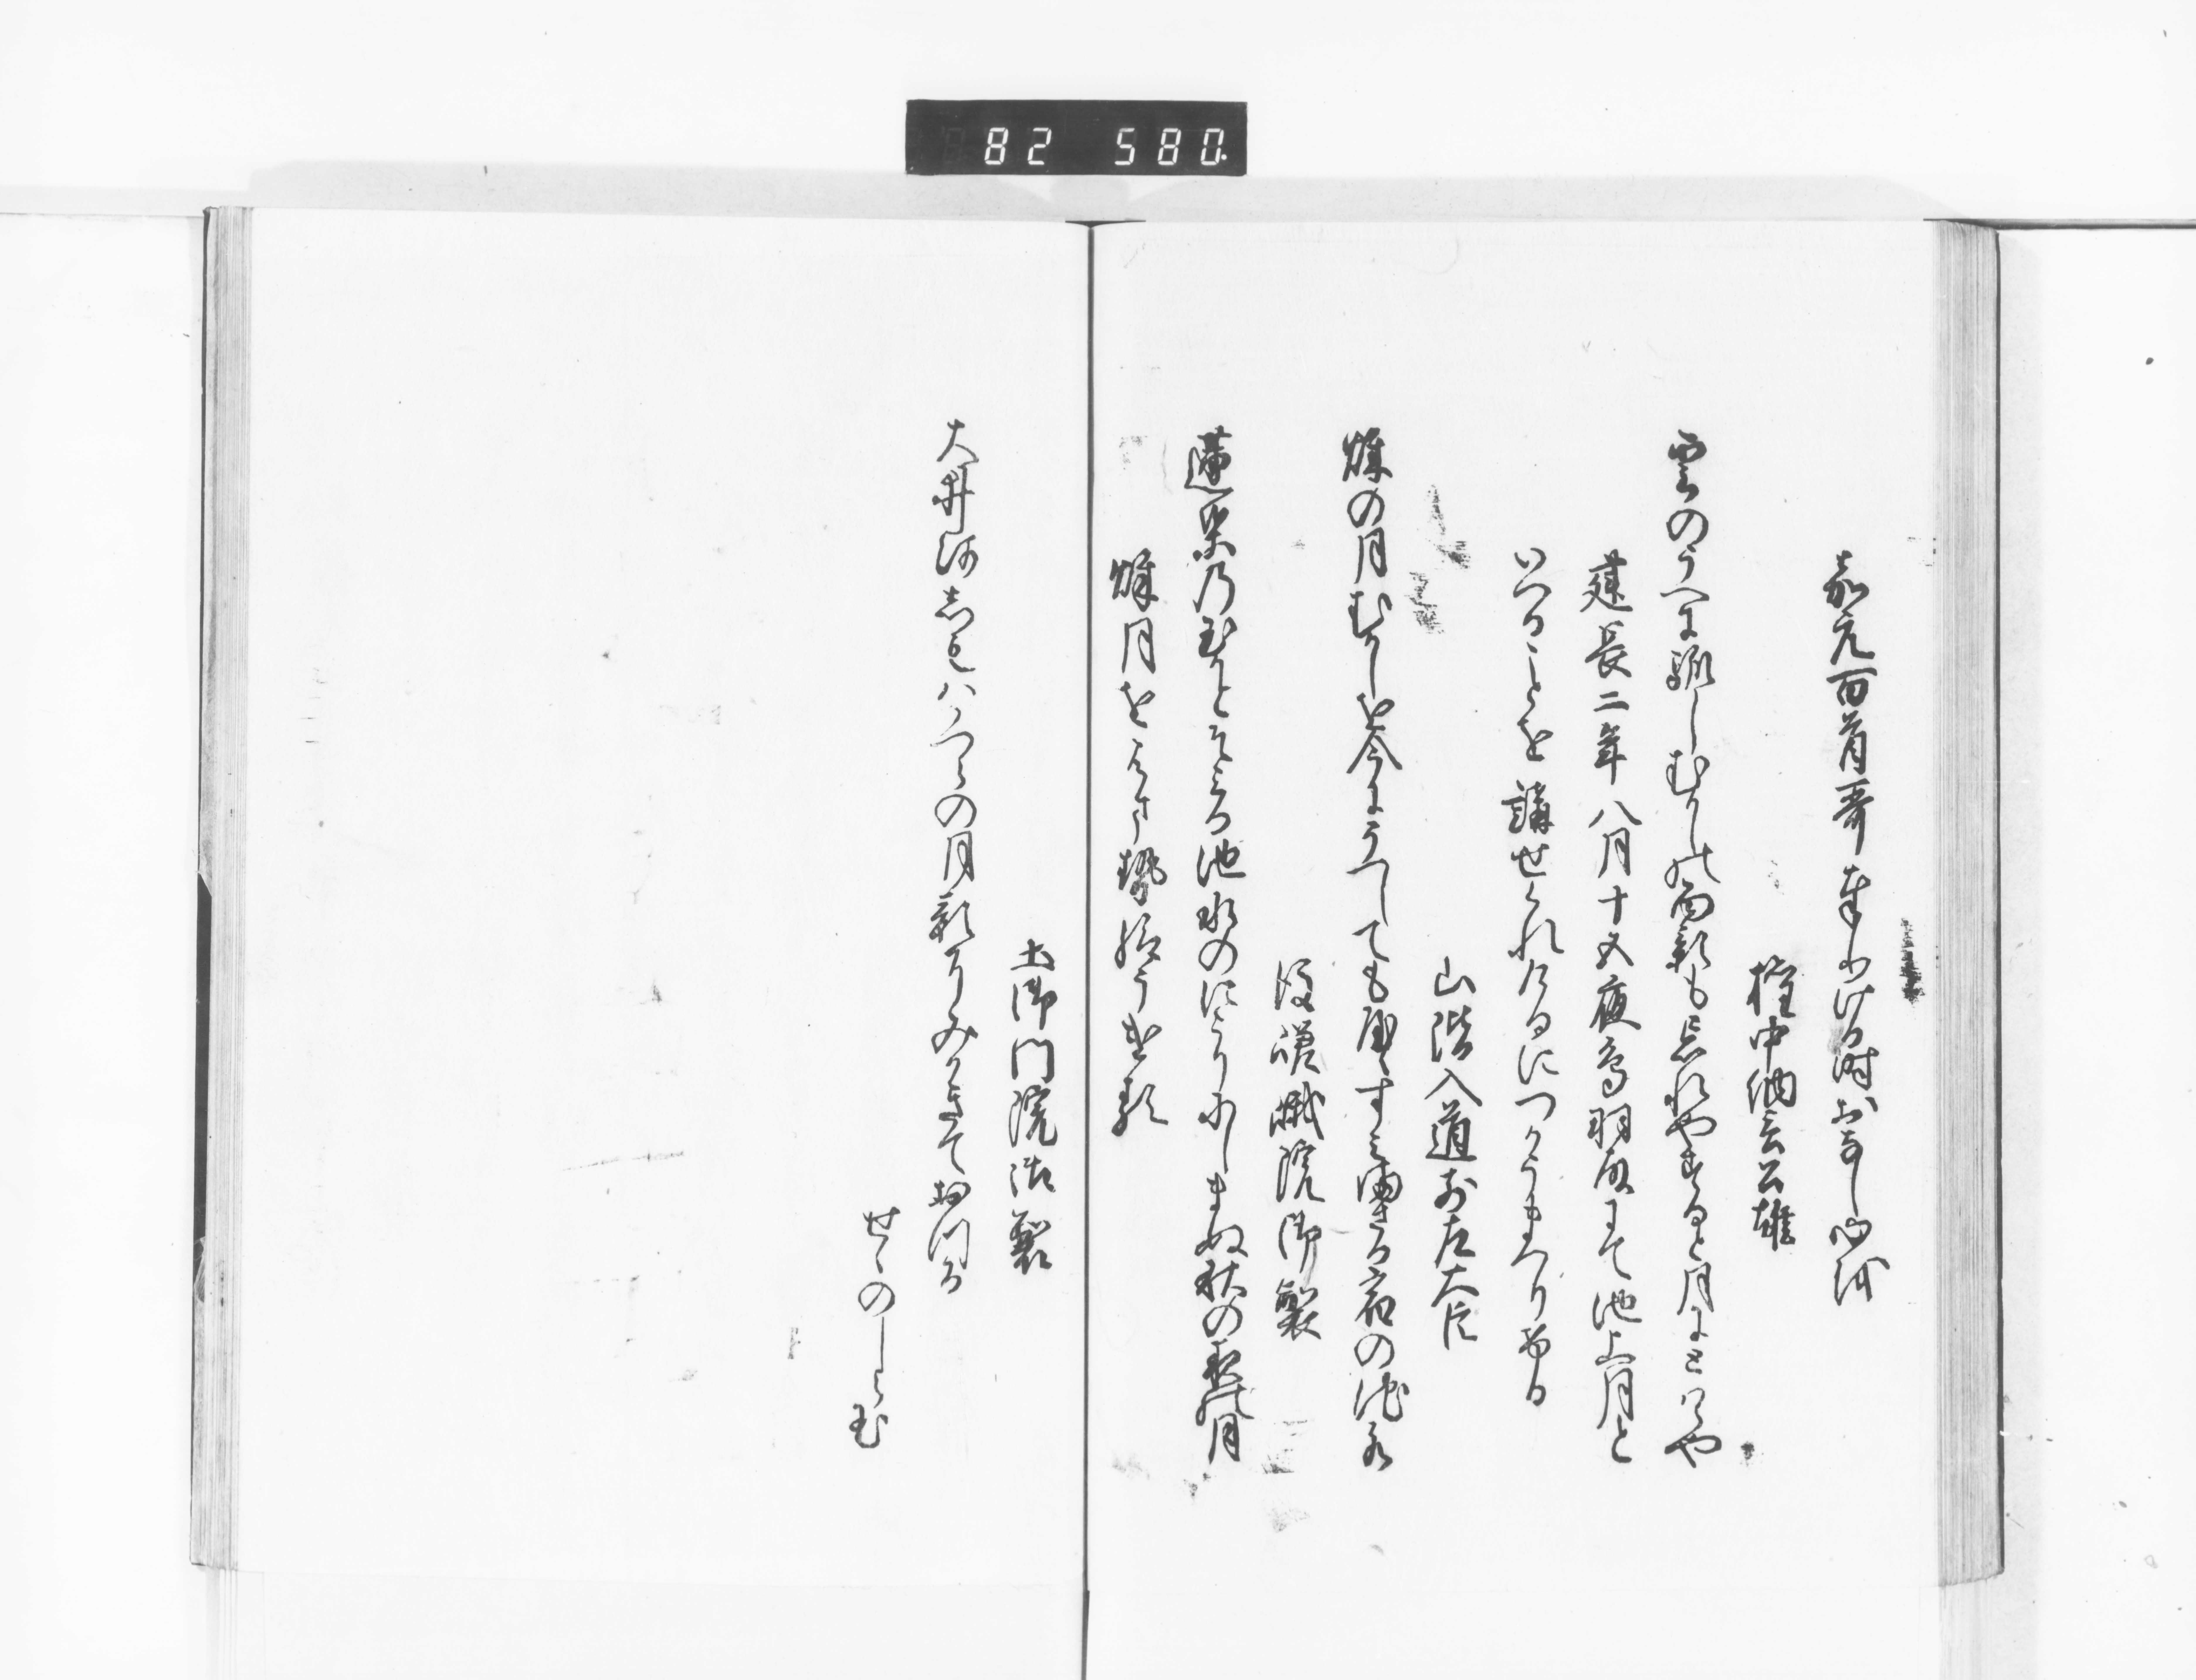 82 580
嘉元百首哥奉りける時おなし心を
権中納言公雄
雲のうへに馴しむかしの面影も忘れやすると月にとはゝや
建長二年八月十五夜鳥羽殿にて池上月と
いへることを講せられけるにつかうまつりける
山階入道前左大臣
秋の月むかしを今にうつしても屋とすみまさる宿の池水
後嵯峨院御製
蓮葉の玉かとそみる池水のにこりにしまぬ秋の夜の月
秋月をよませ給うける
土御門院御製
大井河しもはかつらの月影にみかきておつる
せゝのしら玉